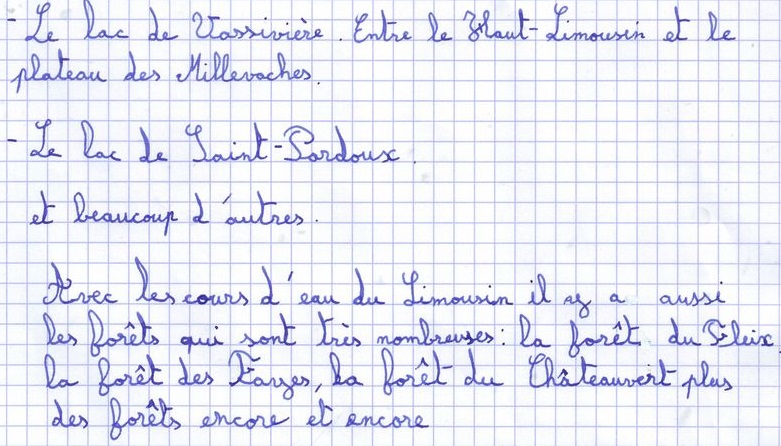 - Le lac de Vassivière. Entre le Haut-Limousin et le
plateau des Millevaches.
- Le lac de Saint-Pardoux.
et beaucoup d'autres.
Avec les cours d'eau du Limousin il y a aussi
les forêts qui sont très nombreuses: la forêt du Fleix,
la forêt des Farges, la forêt du Châteauvert plus
des forêts encore et encore